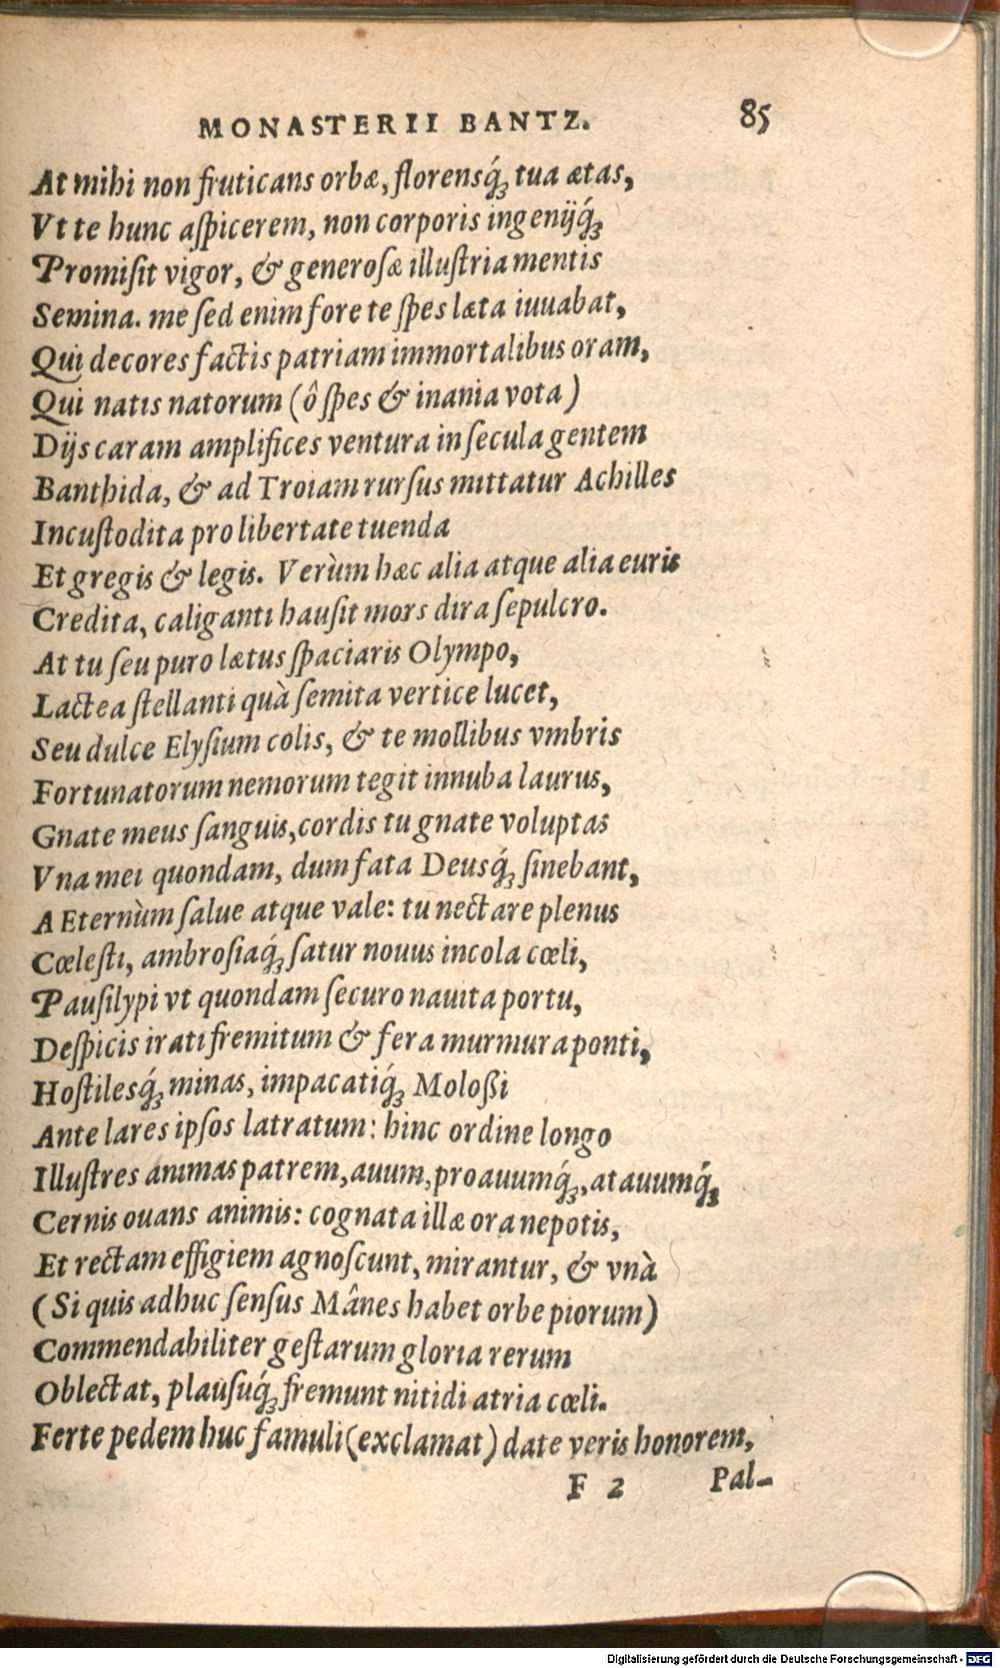 MONASTERII BANTZ. 85
At mihi non fruticans orbæ, florensq́ꝫ tua ætas,
Vt te hunc aſpicerem, non corporis ingenijq́ꝫ
Promiſit vigor, & generoſæ illuſtria mentis
Semina. me ſed enim fore te ſpes læta iuuabat,
Qui decores factis patriam immortalibus oram,
Qui natis natorum (ô ſpes & inania vota)
Dijs caram amplifices ventura in ſecula gentem
Banthida, & ad Troiam rurſus mittatur Achilles
Incuſtodita pro libertate tuenda
Et gregis & legis. Verùm hæc alia atque alia euris
Credita, caliganti hauſit mors dira ſepulcro.
At tu ſeu puro lætus ſpaciaris Olympo,
Lactea ſtellanti quà ſemita vertice lucet,
Seu dulce Elyſium colis, & te mollibus vmbris
Fortunatorum nemorum tegit innuba laurus,
Gnate meus ſanguis, cordis tu gnate voluptas
Vna mei quondam, dum fata Deusq́ꝫ ſinebant,
AEternùm ſalue atque vale: tu nectare plenus
Cœleſti, ambroſiaq́ꝫ ſatur nouus incola cœli,
Pauſilypi vt quondam ſecuro nauita portu,
Deſpicis irati fremitum & fera murmura ponti,
Hoſtilesq́ꝫ minas, impacatiq́ꝫ Moloßi
Ante lares ipſos latratum: hinc ordine longo
Illuſtres animas patrem, auum, proauumq́ꝫ, atauumq́ꝫ
Cernis ouans animis: cognata illæ ora nepotis,
Et rectam effigiem agnoſcunt, mirantur, & vnà
(Si quis adhuc ſenſus Mânes habet orbe piorum)
Commendabiliter geſtarum gloria rerum
Oblectat, plauſuq́ꝫ fremunt nitidi atria cœli.
Ferte pedem huc famuli (exclamat) date veris honorem,
F 2 Pal-
Digitalisierung gefördert durch die Deutsche Forschungsgemeinschaft - DFG